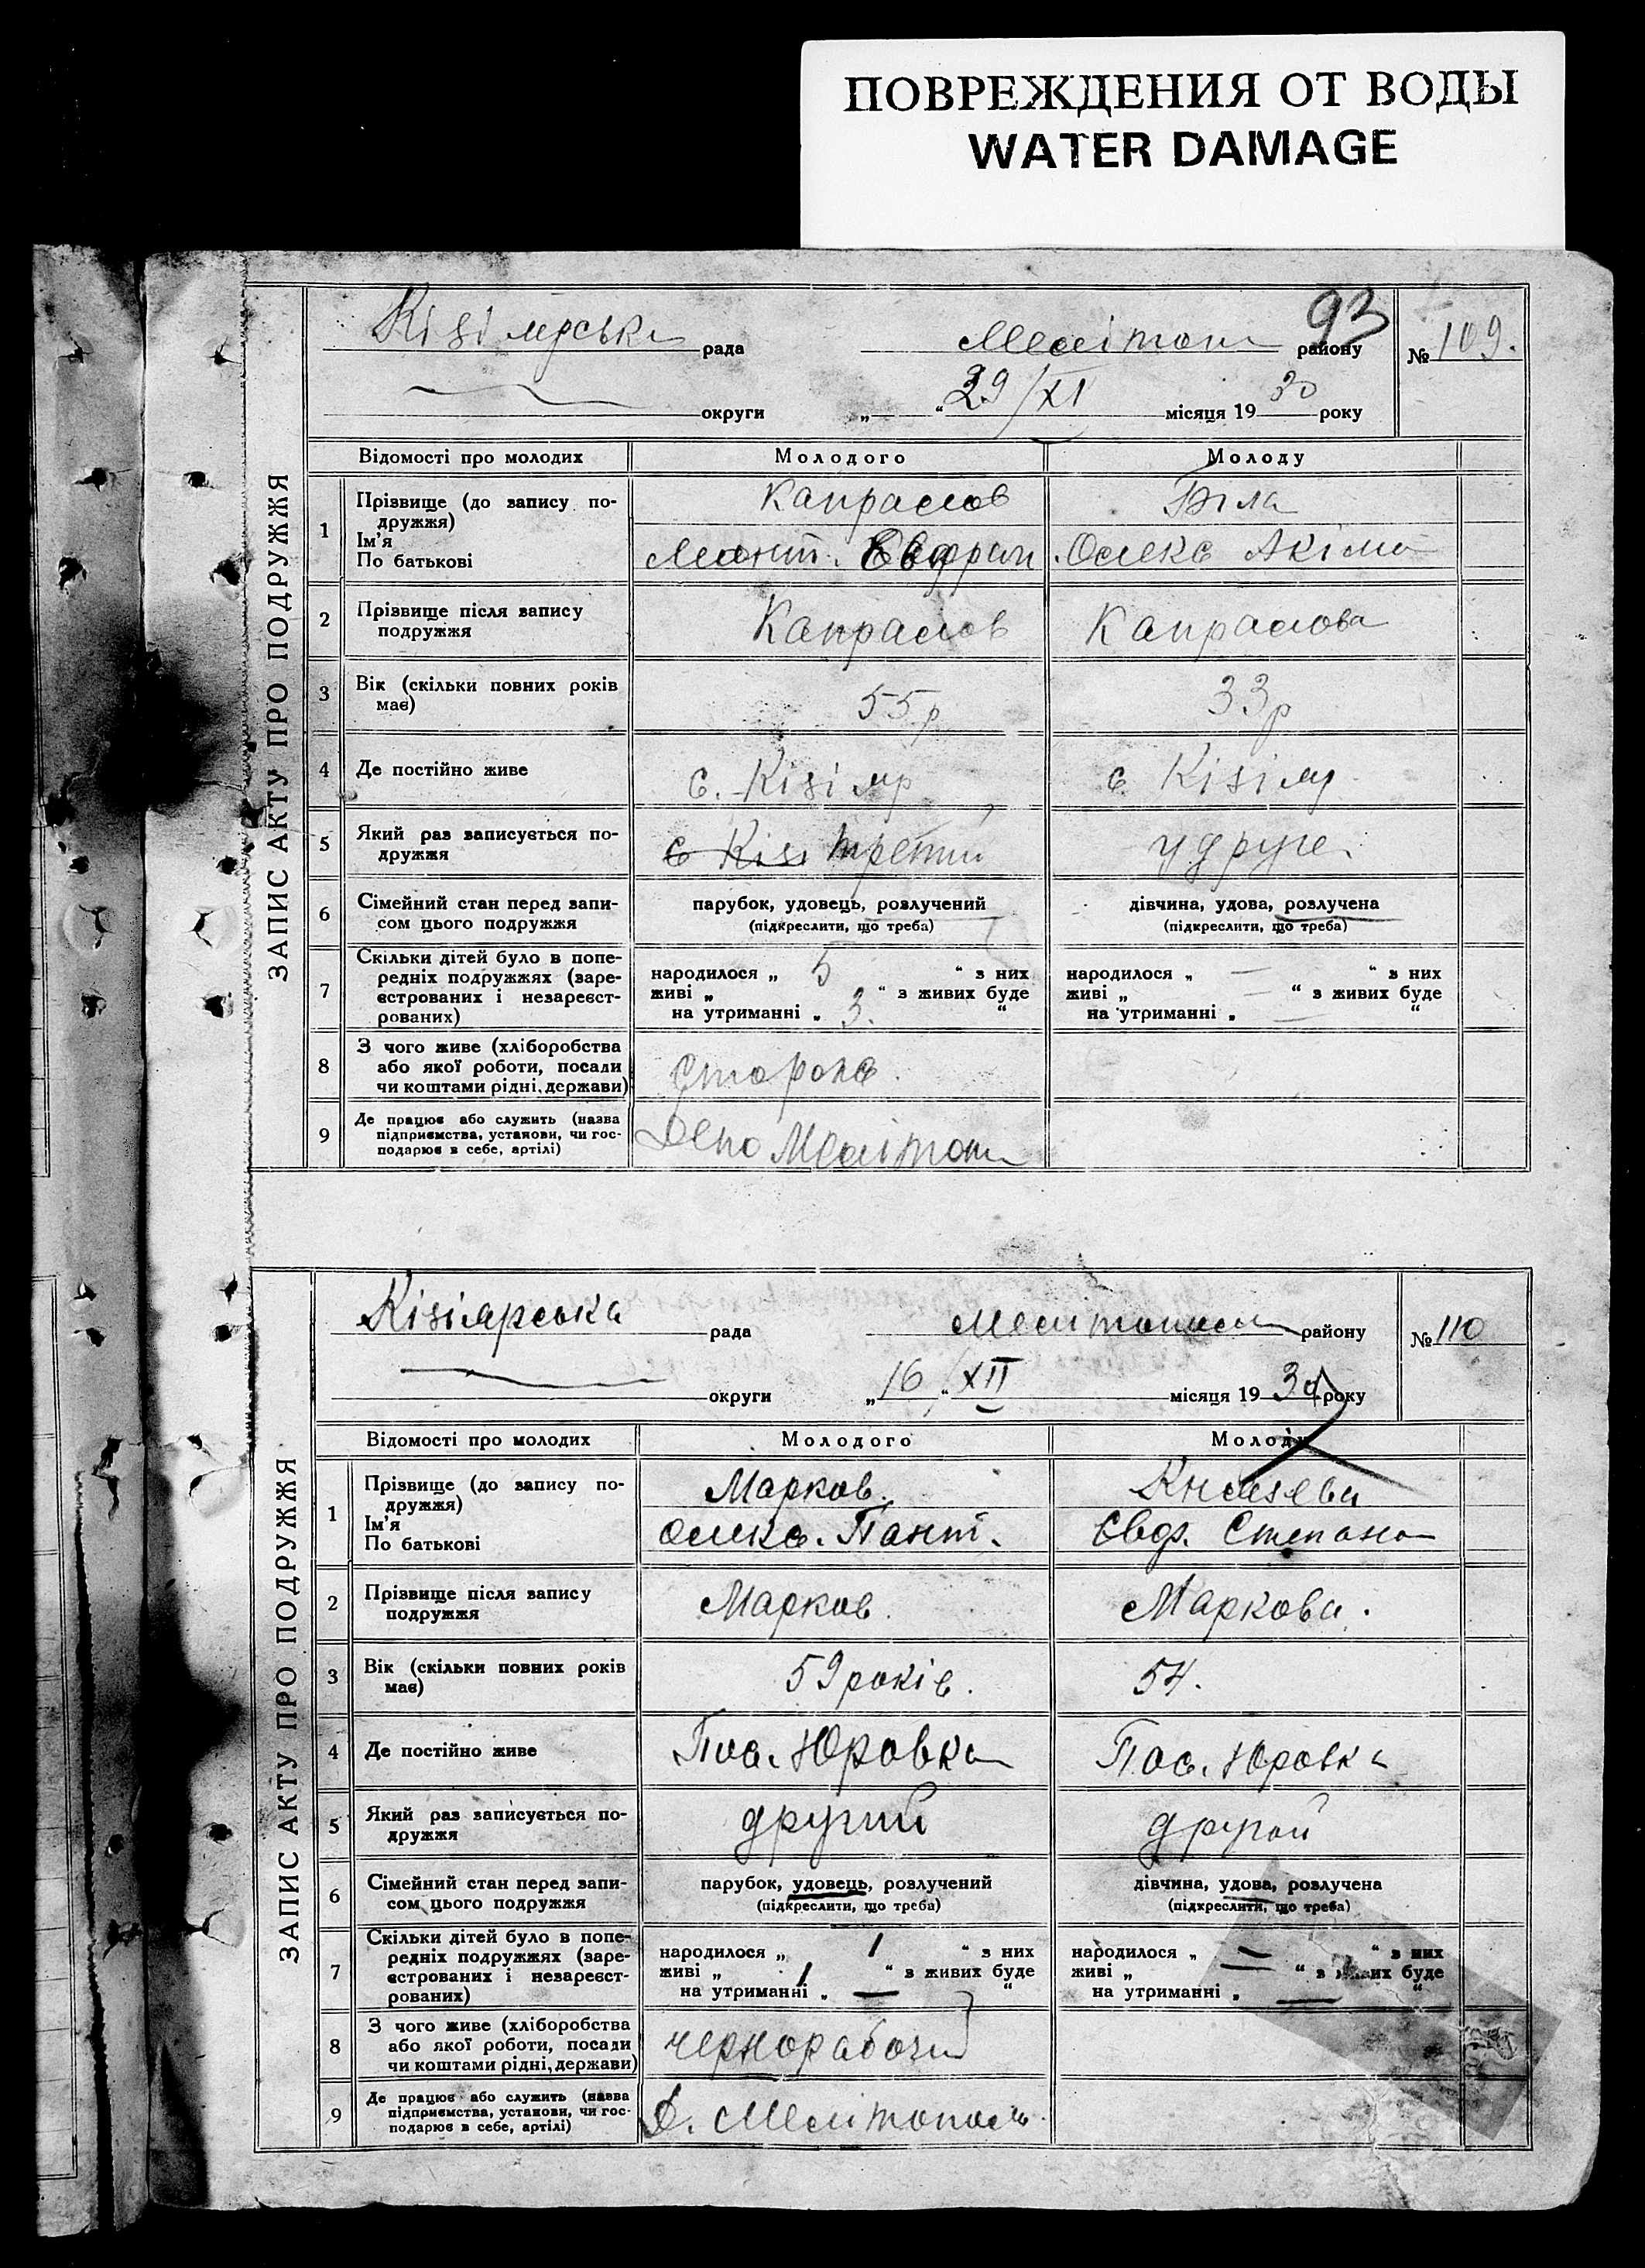 ПОВРЕЖДЕНИЯ ОТ ВОДЫ
WATER DAMAGE
93
ЗАПИС АКТУ ПРО ПОДРУЖЖЯ
Кізіярськ рада Мелітоп району № 109.
округи „ “ 29/XI місяця 1930 року
Відомості про молодих Молодого Молоду
1 Прізвище (до запису по-
дружжя)
Ім'я
По батькові
Капралов Біла
Мант. Евфрам. Олекс Акімо
2 Прізвище після запису
подружжя
Капралов Капралова
3 Вік (скільки повних років
має)
55р 33р
4 Де постійно живе с. Кізіяр с Кізіяр
5 Який раз записується по-
дружжя
с Кізі третий удруге.
6 Сімейний стан перед запи-
сом цього подружжя
парубок, удовець, розлучений дівчина, удова, розлучена
(підкреслити, що треба) (підкреслити, що треба)
7 Скільки дітей було в попе-
редніх подружжях (заре-
єстрованих і незареєст-
рованих)
народилося „ 5 “ з них народилося „ — “ з них
живі „ “ з живих буде живі „ — “ з живих буде
на утриманні „ 3. “ на утриманні „ — “
8 З чого живе (хліборобства
або якої роботи, посади
чи коштами рідні, держави)
Сторож
9 Де працює або служить (назва
підприємства, установи, чи гос-
подарює в себе, артілі)
Депо Мелітоп
ЗАПИС АКТУ ПРО ПОДРУЖЖЯ
Кізіярська рада Мелитополь району № 110
округи „16“ XII місяця 1930 року
Відомості про молодих Молодого Молоду
1 Прізвище (до запису по-
дружжя)
Ім'я
По батькові
Марков. Князева
Олекс. Пант. Евд. Степано
2 Прізвище після запису
подружжя
Марков. Маркова.
3 Вік (скільки повних років
має)
59 років. 54.
4 Де постійно живе Пос. Юровка Пос. Юровка
5 Який раз записується по-
дружжя
другий другой
6 Сімейний стан перед запи-
сом цього подружжя
парубок, удовець, розлучений дівчина, удова, розлучена
(підкреслити, що треба) (підкреслити, що треба)
7 Скільки дітей було в попе-
редніх подружжях (заре-
єстрованих і незареєст-
рованих)
народилося „ 1 “ з них народилося „ — “ з них
живі „ 1 “ з живих буде живі „ — “ з живих буде
на утриманні „ — “ на утриманні „ — “
8 З чого живе (хліборобства
або якої роботи, посади
чи коштами рідні, держави)
чернорабочий
9 Де працює або служить (назва
підприємства, установи, чи гос-
подарює в себе, артілі)
Д. Мелитополь.